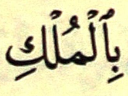 بِٱلْمُلْكِ